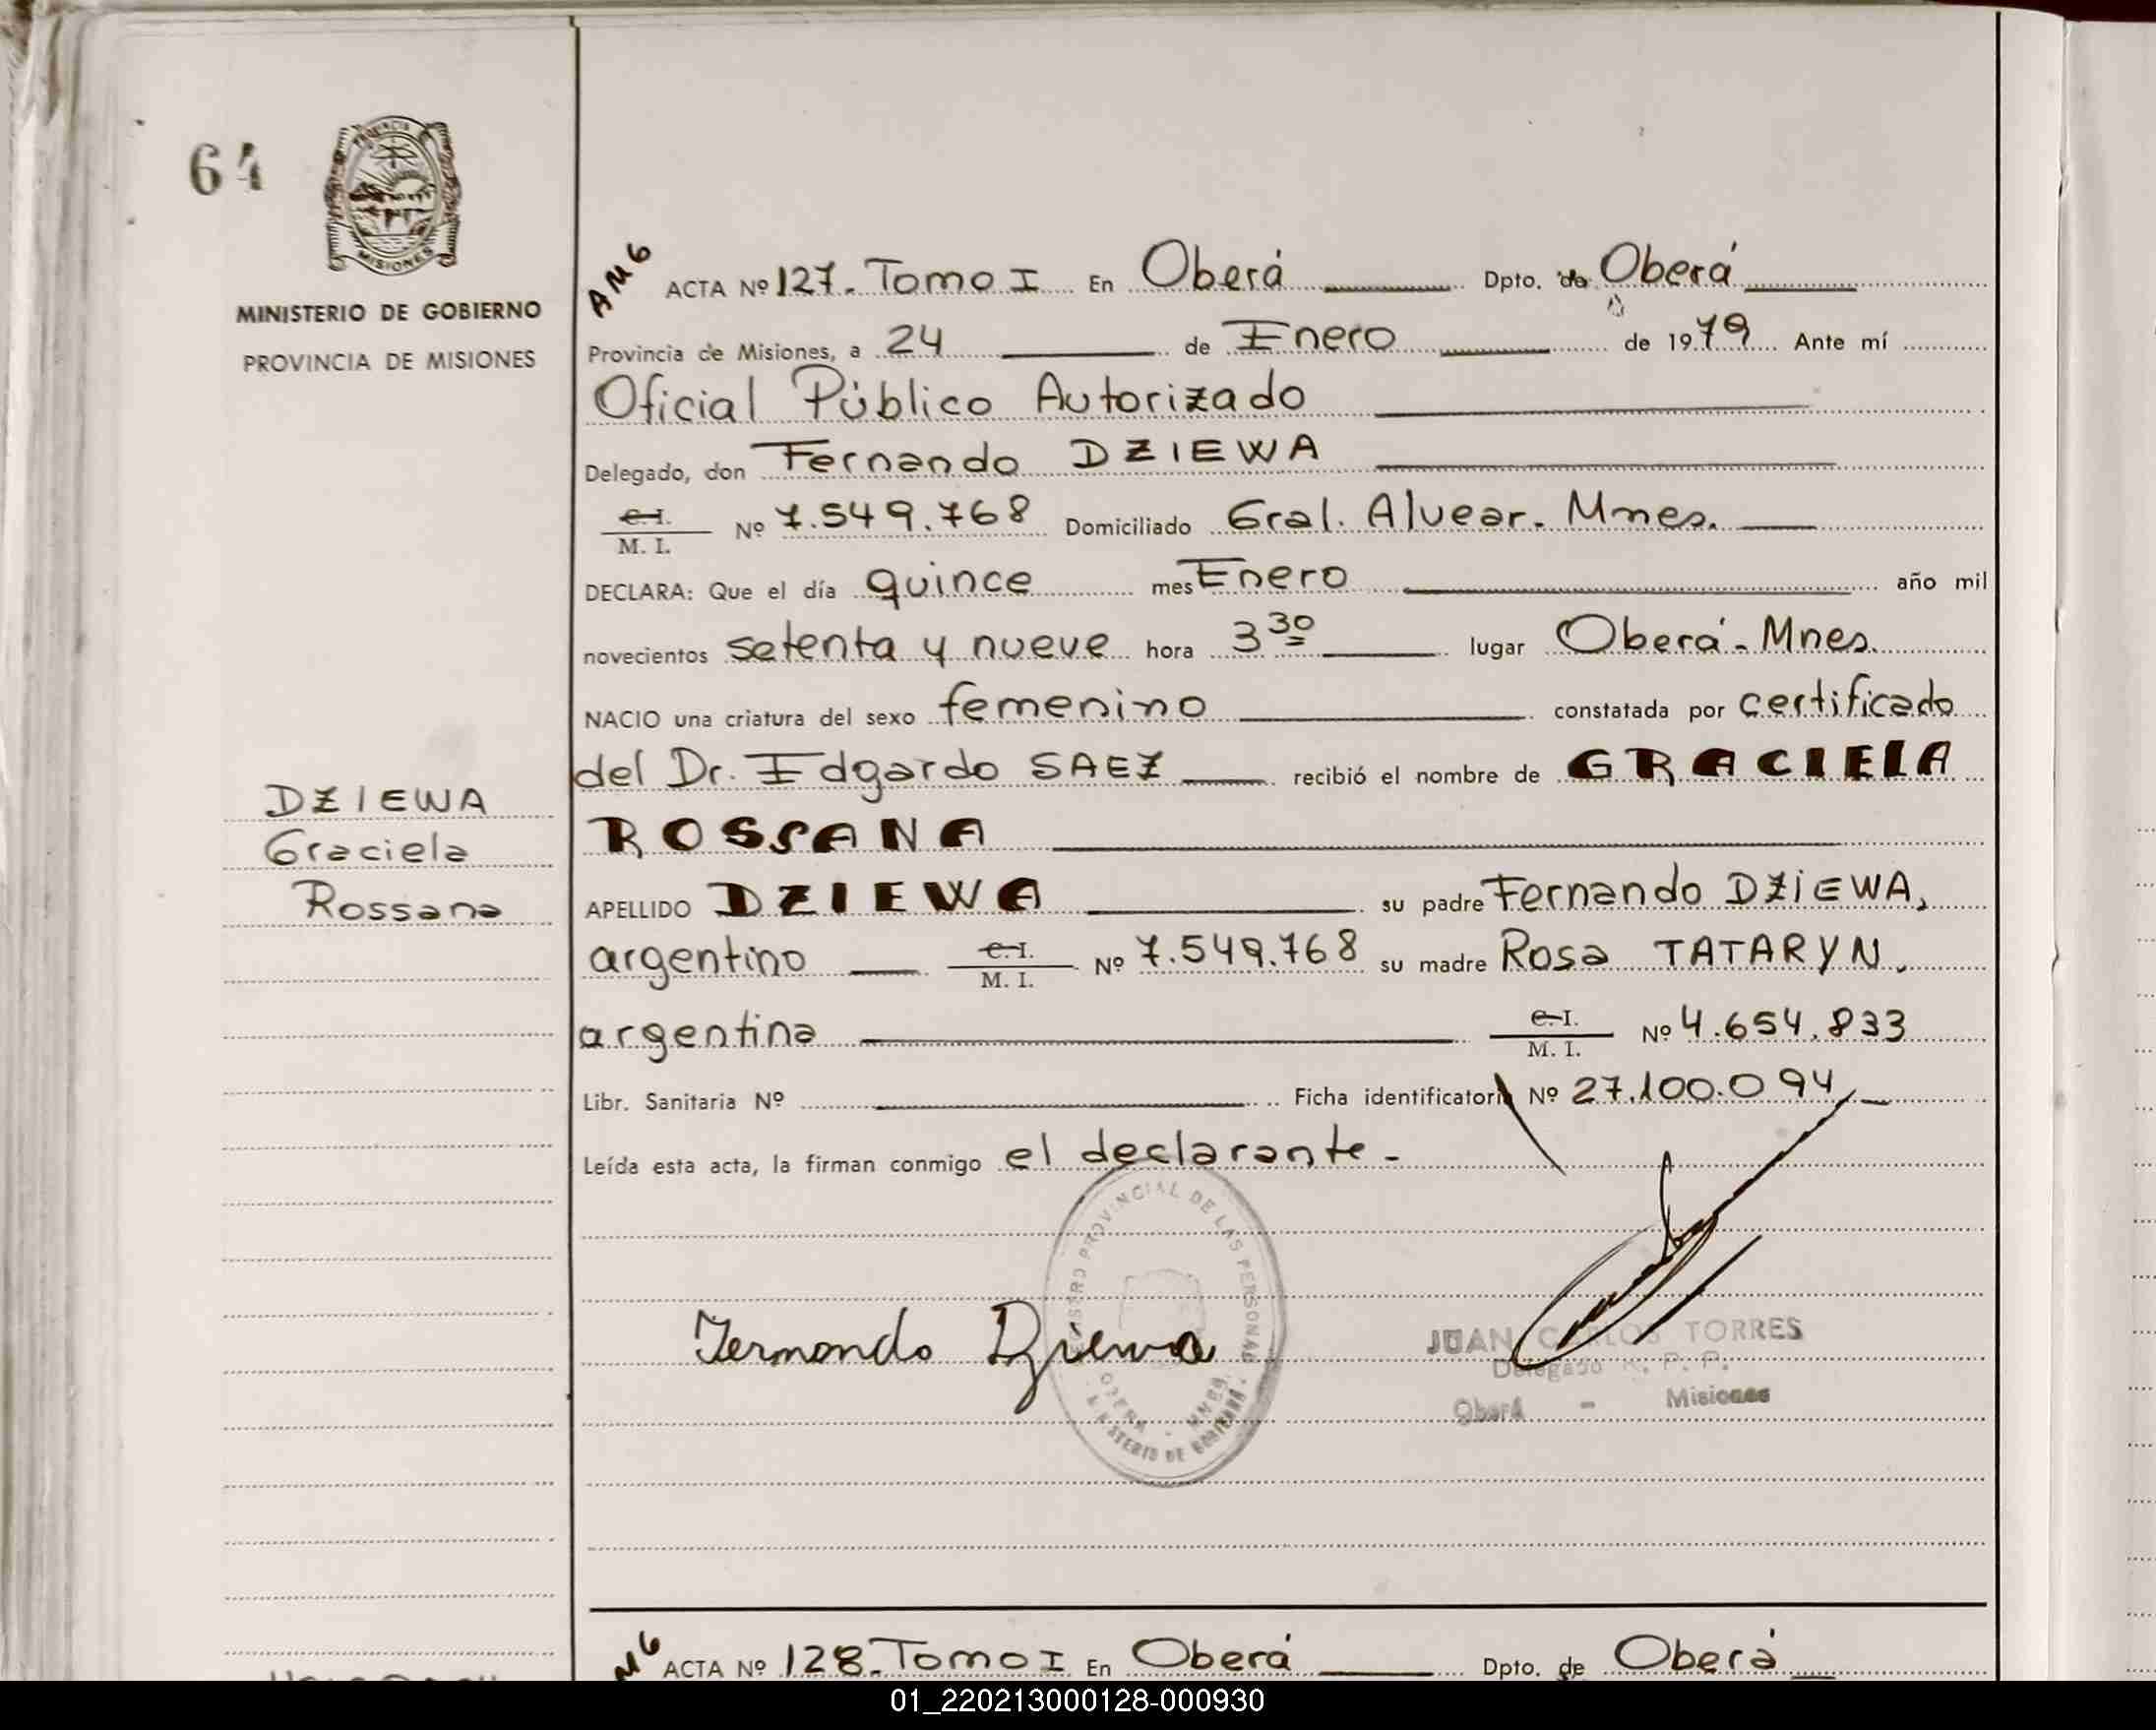 64
PROVINCIA
MISIONES
MINISTERIO DE GOBIERNO
PROVINCIA DE MISIONES
AMG
ACTA Nº 127. Tomo I En Oberá Dpto. de Oberá
Provincia de Misiones, a 24 de Enero de 1979 Ante mí
Oficial Público Autorizado
Delegado, don Fernando DZIEWA
C.I.
M. I. Nº 7.549.768 Domiciliado Gral. Alvear. Mnes.
DECLARA: Que el día quince mes Enero año mil
novecientos setenta y nueve hora 3 30 lugar Oberá - Mnes.
NACIO una criatura del sexo femenino constatada por certificado
del Dr. Edgardo SAEZ recibió el nombre de GRACIELA
ROSSANA
APELLIDO DZIEWA su padre Fernando DZIEWA,
argentino C.I.
M. I. Nº 7.549.768 su madre Rosa TATARYN,
argentina C.I.
M. I. Nº 4.654.833
Libr. Sanitaria Nº Ficha identificatoria Nº 27.100.094
Leída esta acta, la firman conmigo el declarante -
DZIEWA
Graciela
Rossana
REGISTRO PROVINCIAL DE LAS PERSONAS
OBERA - MNES.
MINISTERIO DE GOBIERNO
Fernando Dziewa
JUAN CARLOS TORRES
Delegado R. P. P.
Oberá - Misiones
ACTA Nº 128. Tomo I En Oberá Dpto. de Oberá
01_220213000128-000930